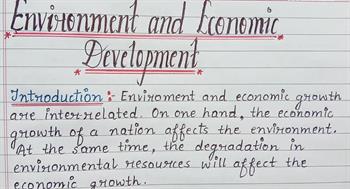 Environment and Economic
Development
Introduction :- Enviroment and economic growth
are interrelated. On one hand, the economic
growth of a nation affects the environment.
At the same time, the degradation in
environmental resources will affect the
economic growth.